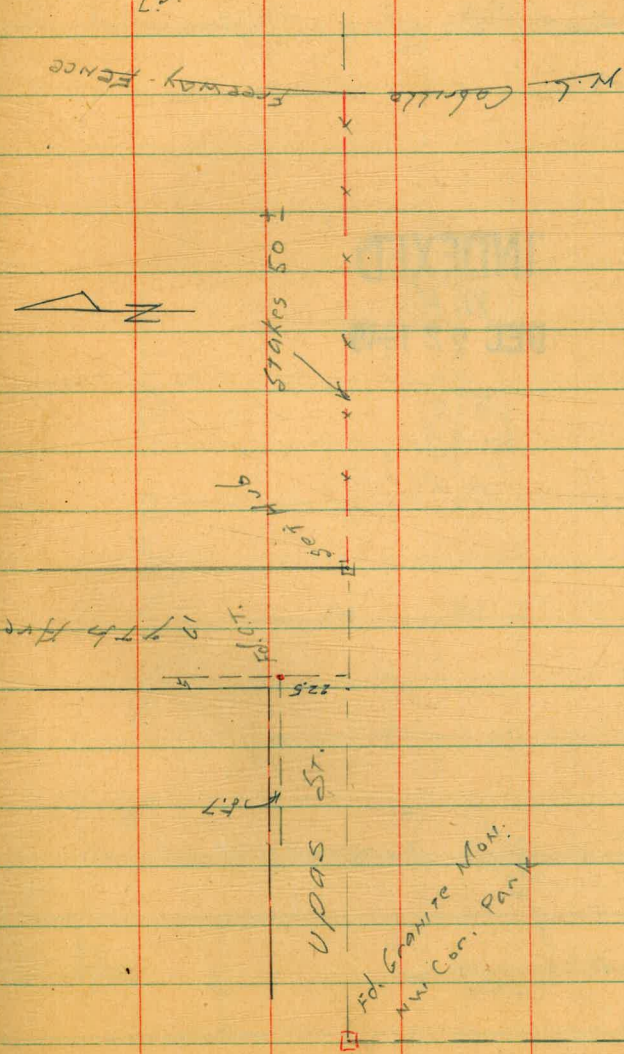 W. L. Cabrillo Freeway Fence
Stakes 50 ±
N
Set Hub
9Th Ave
Fd. C.T.
22.5
5.7
Upas St.
Fd. Granite Mon.
NW. Cor. Park